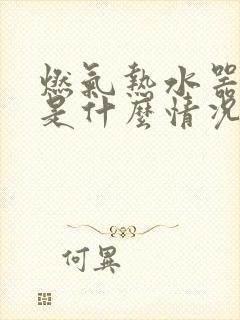 燃氣熱水器
是什麼情況
何異